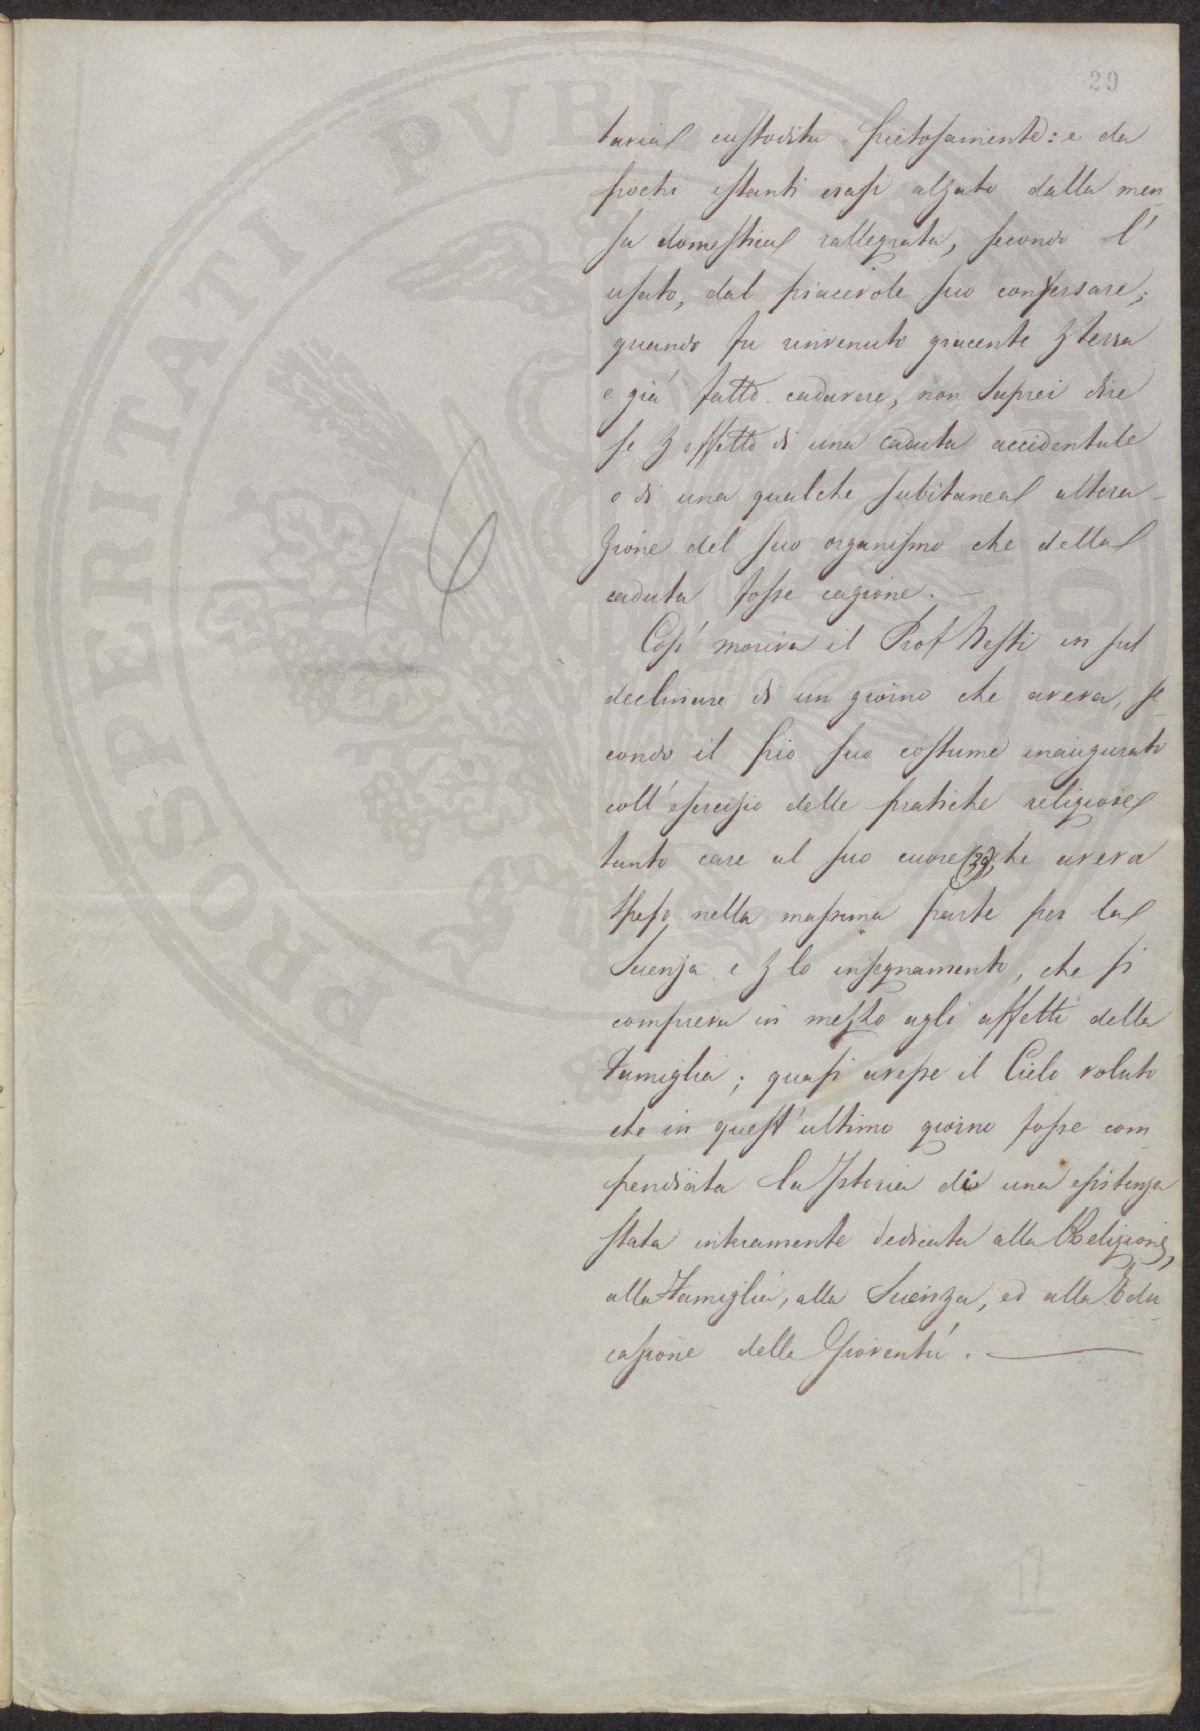 29
taria custodita pietosamente: e da
pochi istanti erasi alzato dalla men
sa domestica rallegrata, secondo l'
usato, dal piacevole suo conversare;
quando fu rinvenuto giacente p terra
e già fatto cadavere, non saprei dire
se p effetto di una caduta accidentale
o di una qualche subitanea altera-
zione del suo organismo che della
caduta fosse cagione. –
16
Così moriva il Prof Nesti in sul
declinare di un giorno che aveva, se-
condo il pio suo costume inaugurato
coll'esercizio delle pratiche religiose
tanto care al suo cuore (29), che aveva
speso nella massima parte per la
Scienza e p lo insegnamento, che si
compieva in mezzo agli affetti della
Famiglia; quasi avesse il Cielo voluto
che in quest'ultimo giorno fosse com-
pendiata la Istoria di una esistenza
stata interamente dedicata alla Religione,
alla Famiglia, alla Scienza, ed alla Edu-
cazione della Gioventù. —
PROSPERITATI PVBLI